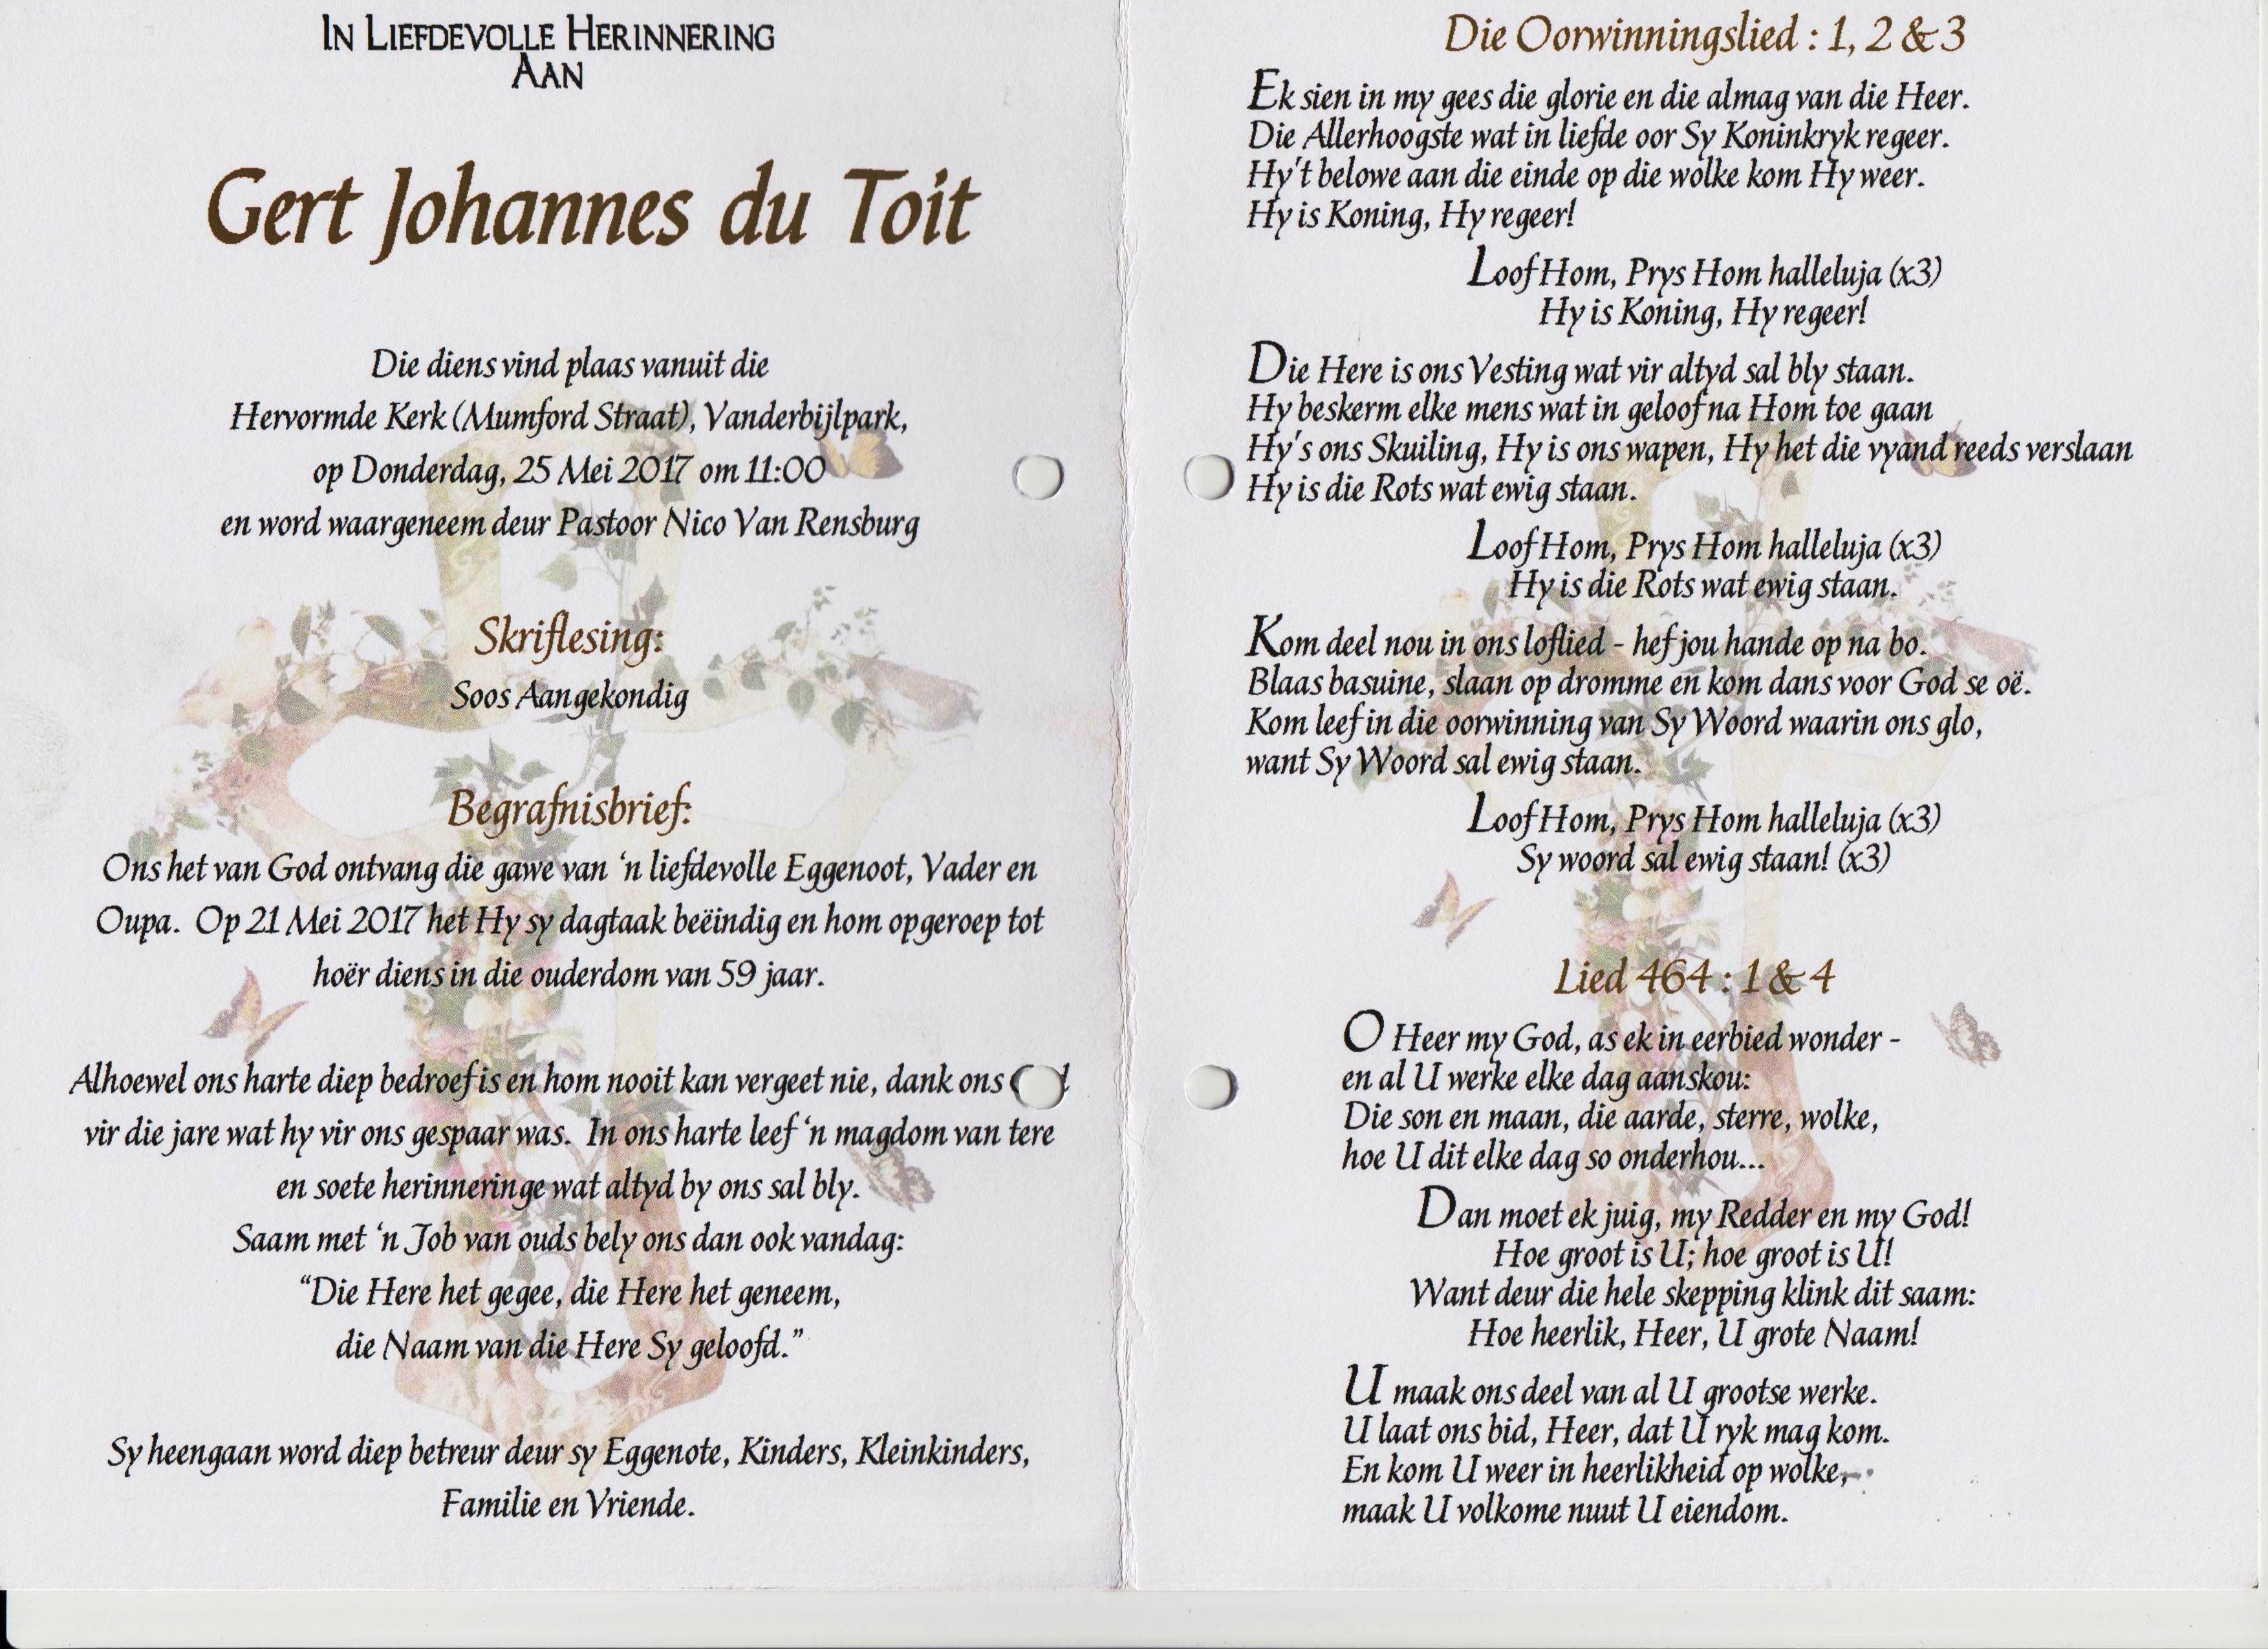 In Liefdevolle Herinnering
Aan
Gert Johannes du Toit
Die diens vind plaas vanuit die
Hervormde Kerk (Mumford Straat), Vanderbijlpark,
op Donderdag, 25 Mei 2017 om 11:00
en word waargeneem deur Pastoor Nico Van Rensburg
Skriflesing:
Soos Aangekondig
Begrafnisbrief:
Ons het van God ontvang die gawe van ‘n liefdevolle Eggenoot, Vader en
Oupa. Op 21 Mei 2017 het Hy sy dagtaak beëindig en hom opgeroep tot
hoër diens in die ouderdom van 59 jaar.
Alhoewel ons harte diep bedroef is en hom nooit kan vergeet nie, dank ons
vir die jare wat hy vir ons gespaar was. In ons harte leef ‘n magdom van tere
en soete herinneringe wat altyd by ons sal bly.
Saam met ‘n Job van ouds bely ons dan ook vandag:
“Die Here het gegee, die Here het geneem,
die Naam van die Here Sy geloofd.”
Sy heengaan word diep betreur deur sy Eggenote, Kinders, Kleinkinders,
Familie en Vriende.
Die Oorwinningslied : 1, 2 & 3
Ek sien in my gees die glorie en die almag van die Heer.
Die Allerhoogste wat in liefde oor Sy Koninkryk regeer.
Hy't belowe aan die einde op die wolke kom Hy weer.
Hy is Koning, Hy regeer!
Loof Hom, Prys Hom halleluja (x3)
Hy is Koning, Hy regeer!
Die Here is ons Vesting wat vir altyd sal bly staan.
Hy beskerm elke mens wat in geloof na Hom toe gaan
Hy's ons Skuiling, Hy is ons wapen, Hy het die vyand reeds verslaan
Hy is die Rots wat ewig staan.
Loof Hom, Prys Hom halleluja (x3)
Hy is die Rots wat ewig staan.
Kom deel nou in ons loflied - hef jou hande op na bo.
Blaas basuine, slaan op dromme en kom dans voor God se oë.
Kom leef in die oorwinning van Sy Woord waarin ons glo,
want Sy Woord sal ewig staan.
Loof Hom, Prys Hom halleluja (x3)
Sy woord sal ewig staan! (x3)
Lied 464 : 1 & 4
O Heer my God, as ek in eerbied wonder -
en al U werke elke dag aanskou:
Die son en maan, die aarde, sterre, wolke,
hoe U dit elke dag so onderhou...
Dan moet ek juig, my Redder en my God!
Hoe groot is U; hoe groot is U!
Want deur die hele skepping klink dit saam:
Hoe heerlik, Heer, U grote Naam!
U maak ons deel van al U grootse werke.
U laat ons bid, Heer, dat U ryk mag kom.
En kom U weer in heerlikheid op wolke,
maak U volkome nuut U eiendom.